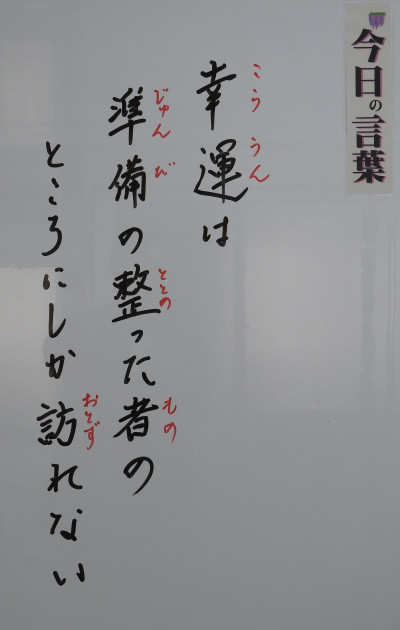 今日の言葉
こううん
幸運は
じゅんび ととの もの
準備の整った者の
おとず
ところにしか訪れない